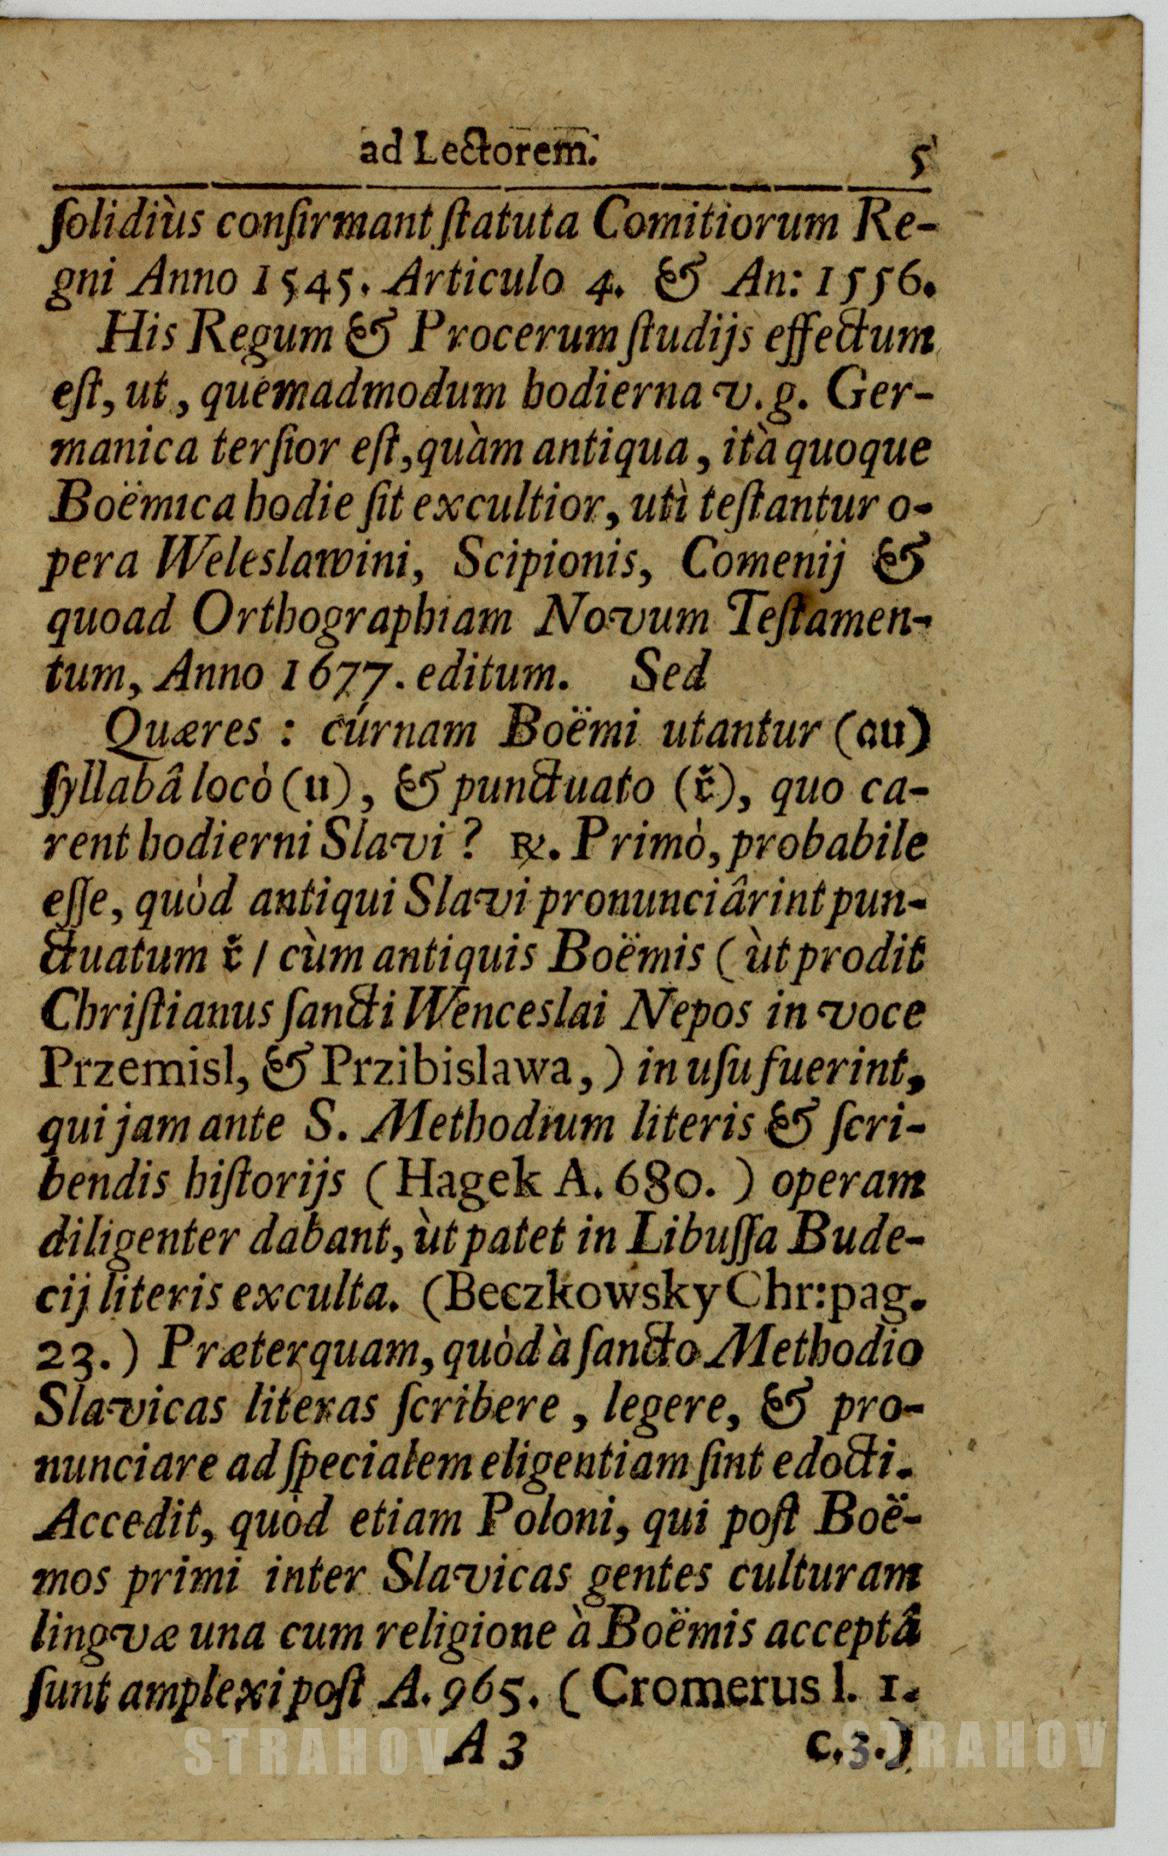 ad Lectorem. 5
ſolidiùs conſirmant ſtatuta Comitiorum Re-
gni Anno 1545. Articulo 4. & An: 1556.
His Regum & Procerum ſtudijs effectum
eſt, ut, quemadmodum hodierna v. g. Ger-
manica terſior eſt, quàm antiqua, ità quoque
Boëmica hodie ſit excultior, utì teſtantur o-
pera Weleslawini, Scipionis, Comenij &
quoad Orthographiam Novum Teſtamen-
tum, Anno 1677. editum. Sed
Quæres : cúrnam Boëmi utantur (au)
ſyllabâ locò (u), & punctuato (ř), quo ca-
rent hodierni Slavi ? ℞. Primò, probabile
eſſe, quòd antiqui Slavi pronunciârint pun-
ctuatum ř / cùm antiquis Boëmis ( ùt prodit
Chriſtianus ſancti Wenceslai Nepos in voce
Przemisl, & Przibislawa, ) in uſu fuerint,
qui jam ante S. Methodium literis & ſcri-
bendis hiſtorijs ( Hagek A. 680. ) operam
diligenter dabant, ùt patet in Libuſſa Bude-
cij literis exculta. (Beczkowsky Chr: pag.
23. ) Præterquam, quòd à ſancto Methodio
Slavicas literas ſcribere, legere, & pro-
nunciare ad ſpecialem eligentiam ſint edocti.
Accedit, quòd etiam Poloni, qui poſt Boë-
mos primi inter Slavicas gentes culturam
lingvæ una cum religione à Boëmis acceptâ
ſunt amplexi poſt A. 965. ( Cromerus l. 1.
A 3 c. 3.)
STRAHOV STRAHOV